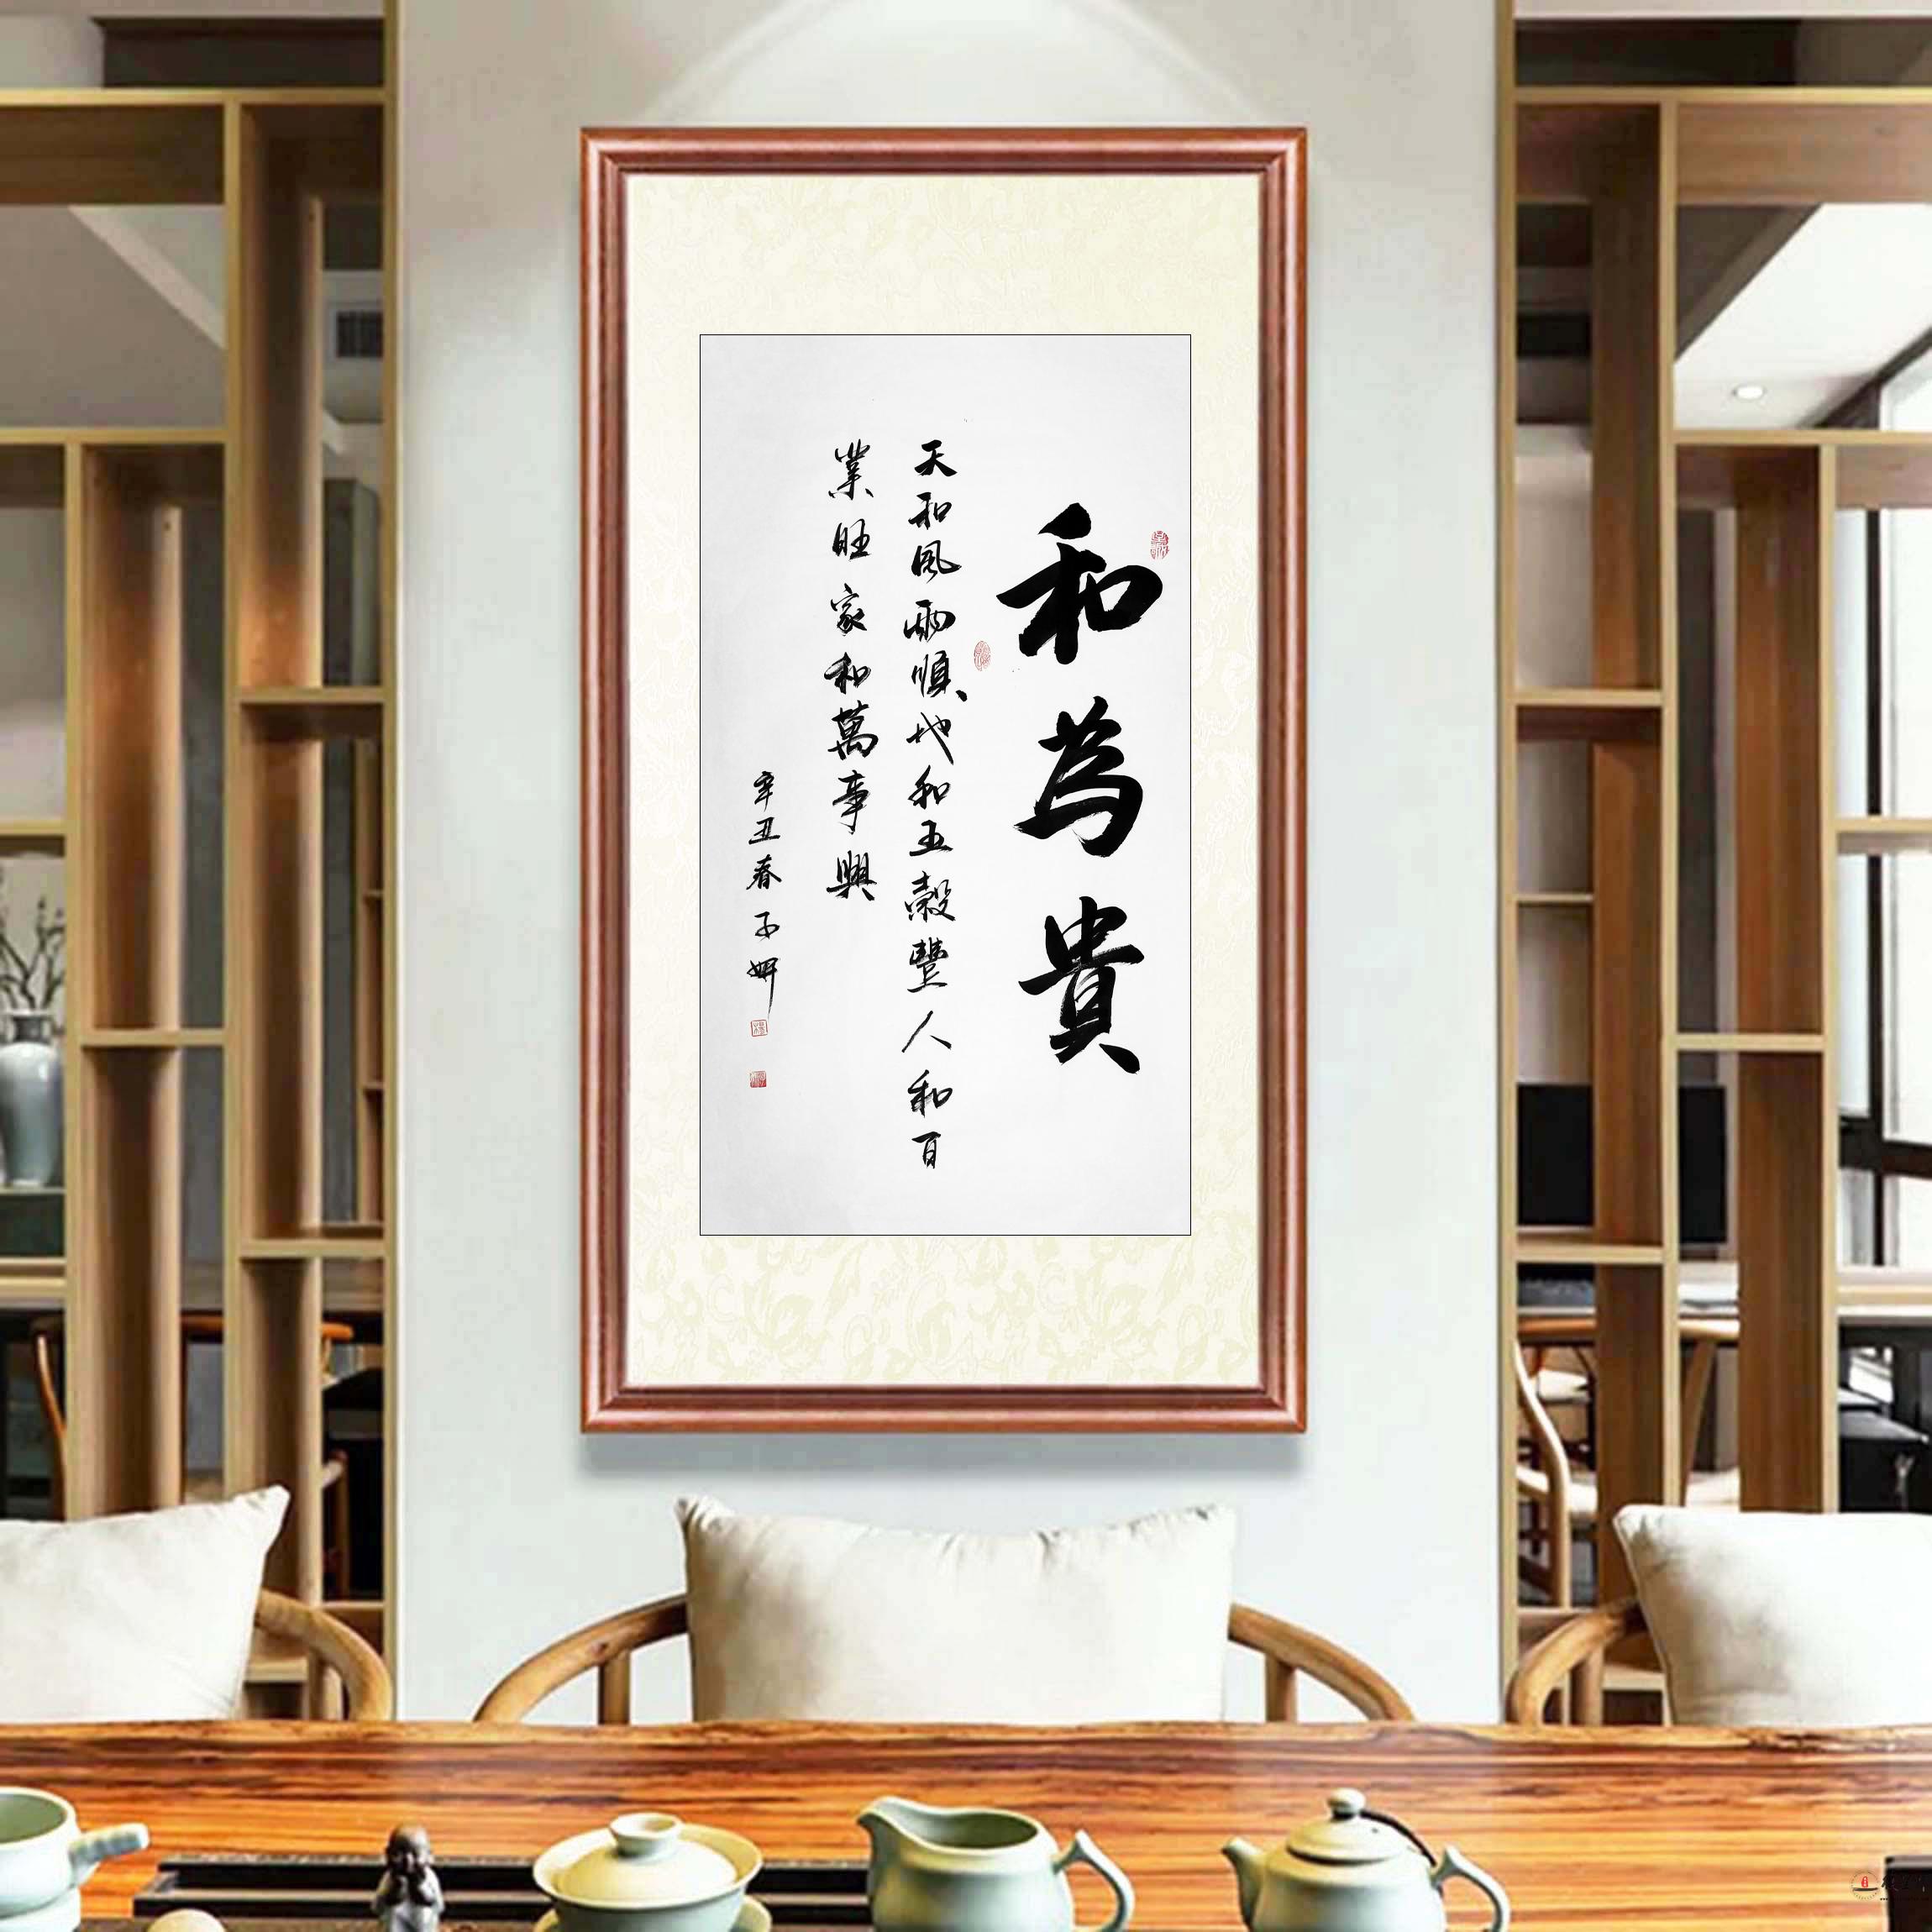 和為貴
天和風雨順地和五穀豐人和百
業旺家和萬事興
辛丑春子妍